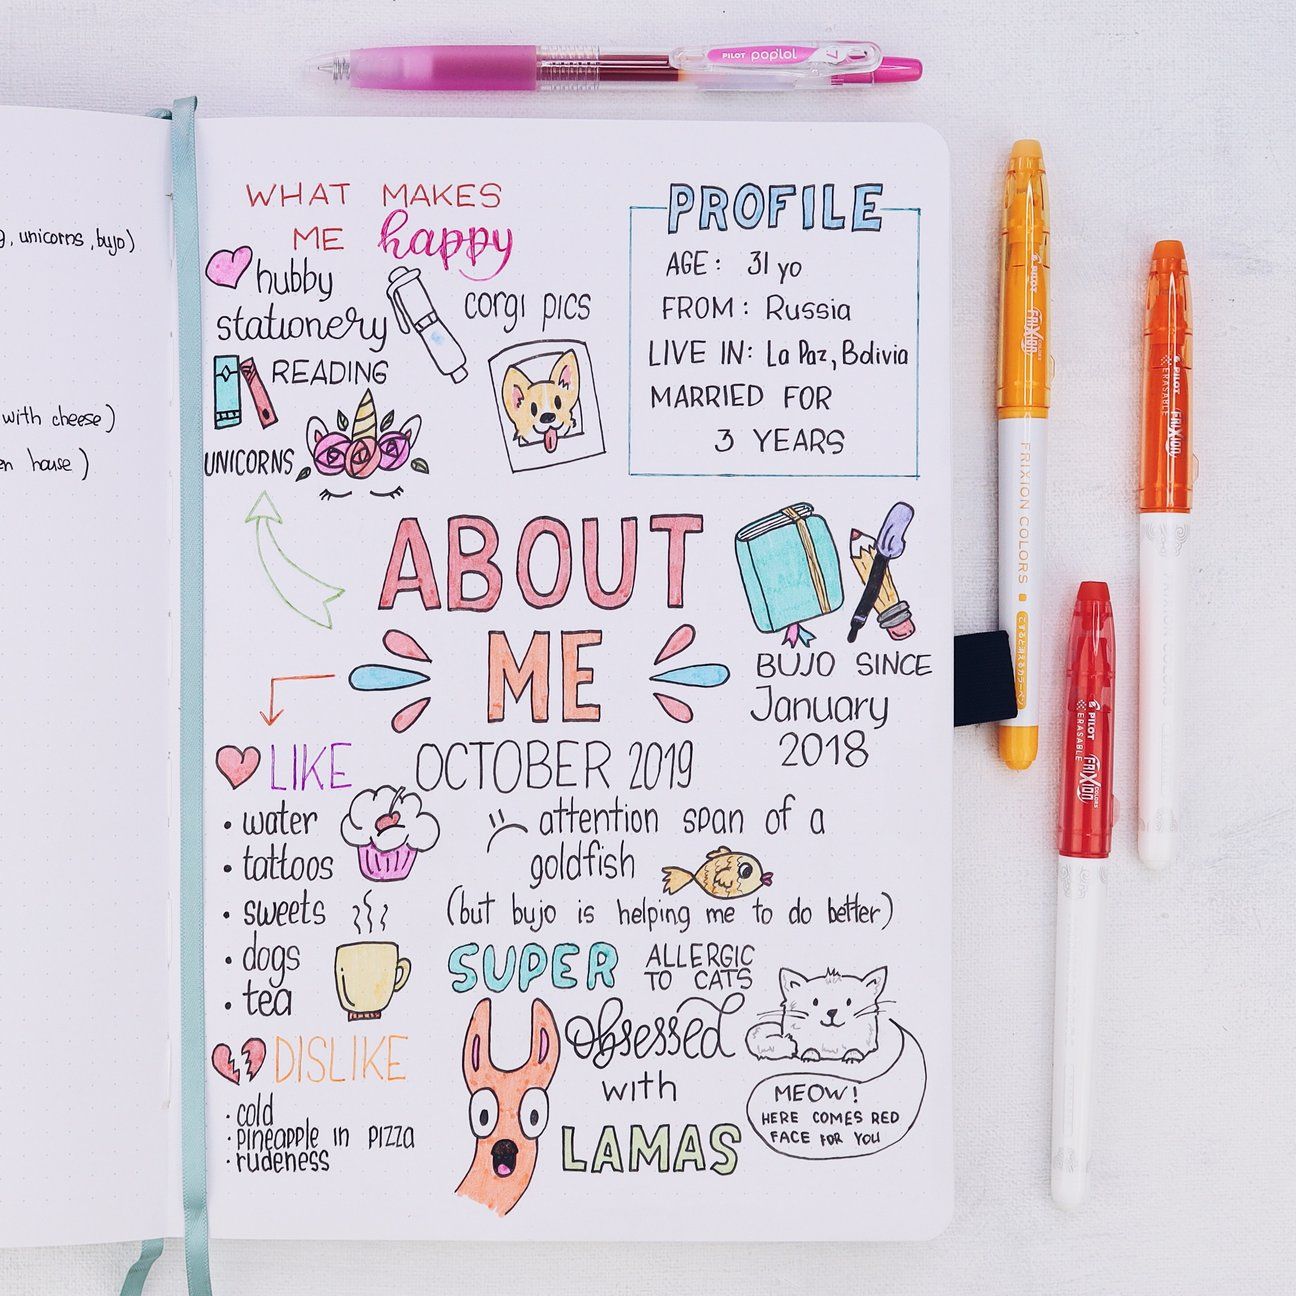 PILOT pop'lol 7
, unicorns, bujo)
with cheese)
house)
WHAT MAKES
ME happy
hubby
stationery
corgi pics
READING
UNICORNS
PROFILE
AGE: 31 yo
FROM: Russia
LIVE IN: La Paz, Bolivia
MARRIED FOR
3 YEARS
ABOUT
ME
OCTOBER 2019
BUJO SINCE
January
2018
LIKE
• water
• tattoos
• sweets
• dogs
• tea
DISLIKE
· cold
· pineapple in pizza
· rudeness
attention span of a
goldfish
(but bujo is helping me to do better)
SUPER ALLERGIC
TO CATS
obsessed
with
LAMAS
MEOW!
HERE COMES RED
FACE FOR YOU
PILOT FRIXION
FRIXION COLORS
PILOT FRIXION
ERASABLE
PILOT FRIXION COLORS
ERASABLE